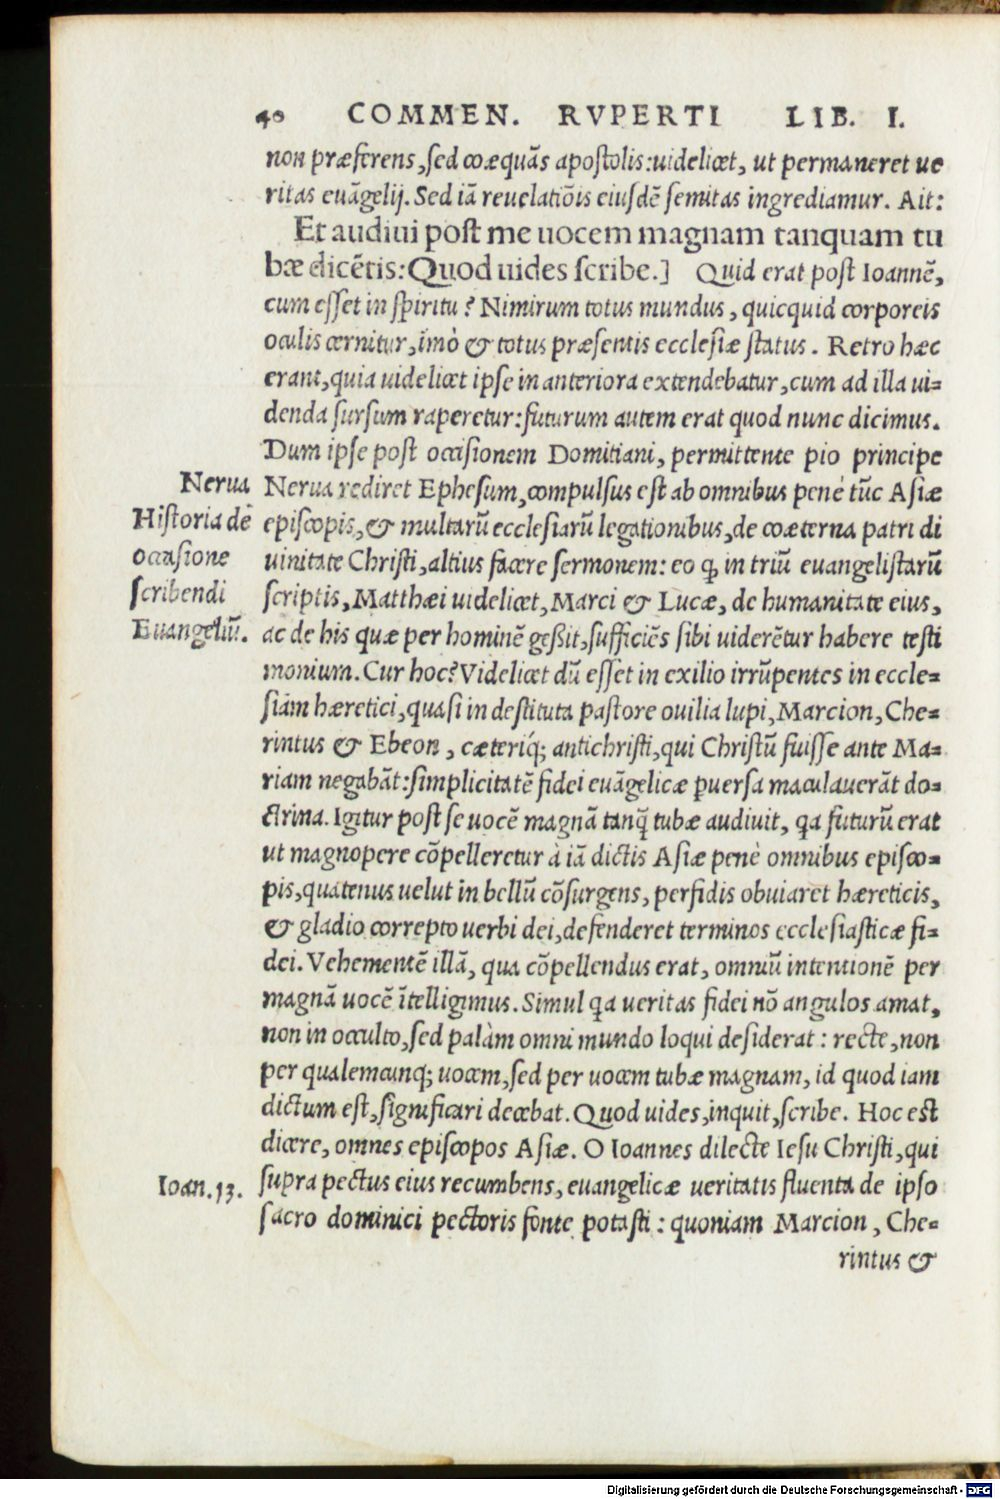 40 COMMEN. RVPERTI LIB. I.
non præferens, sed coæquãs apostolis: uidelicet, ut permaneret ue
ritas euãgelij. Sed iã reuelatiõis eiusdẽ semitas ingrediamur. Ait:
Et audiui post me uocem magnam tanquam tu
bæ dicẽtis: Quod uides scribe.] Quid erat post Ioannẽ,
cum esset in spiritu? Nimirum totus mundus, quicquid corporeis
oculis cernitur, imò & totus præsentis ecclesiæ status. Retro hæc
erant, quia uidelicet ipse in anteriora extendebatur, cum ad illa ui=
denda sursum raperetur: futurum autem erat quod nunc dicimus.
Dum ipse post occisionem Domitiani, permittente pio principe
Nerua
Nerua rediret Ephesum, compulsus est ab omnibus penè tũc Asiæ
Historia de
episcopis, & multarũ ecclesiarũ legationibus, de coæterna patri di
occasione
uinitate Christi, altius facere sermonem: eo ꝙ in triũ euangelistarũ
scribendi
scriptis, Matthæi uidelicet, Marci & Lucæ, de humanitate eius,
Euangeliũ.
ac de his quæ per hominẽ geßit, sufficiẽs sibi uiderẽtur habere testi
monium. Cur hoc? Videlicet dũ esset in exilio irrũpentes in eccle=
siam hæretici, quasi in destituta pastore ouilia lupi, Marcion, Che=
rintus & Ebeon, cæteriq́; antichristi, qui Christũ fuisse ante Ma=
riam negabãt: simplicitatẽ fidei euãgelicæ ꝑuersa maculauerãt do=
ctrina. Igitur post se uocẽ magnã tanq̃ tubæ audiuit, qa futurũ erat
ut magnopere cõpelleretur à iã dictis Asiæ penè omnibus episco=
pis, quatenus uelut in bellũ cõsurgens, perfidis obuiaret hæreticis,
& gladio correpto uerbi dei, defenderet terminos ecclesiasticæ fi=
dei. Vehementẽ illã, qua cõpellendus erat, omniũ intentionẽ per
magnã uocẽ ĩtelligimus. Simul qa ueritas fidei nõ angulos amat,
non in occulto, sed palàm omni mundo loqui desiderat: recte, non
per qualemcunq; uocem, sed per uocem tubæ magnam, id quod iam
dictum est, significari decebat. Quod uides, inquit, scribe. Hoc est
dicere, omnes episcopos Asiæ. O Ioannes dilecte Iesu Christi, qui
Ioan. 13.
supra pectus eius recumbens, euangelicæ ueritatis fluenta de ipso
sacro dominici pectoris fonte potasti: quoniam Marcion, Che=
rintus &
Digitalisierung gefördert durch die Deutsche Forschungsgemeinschaft - DFG